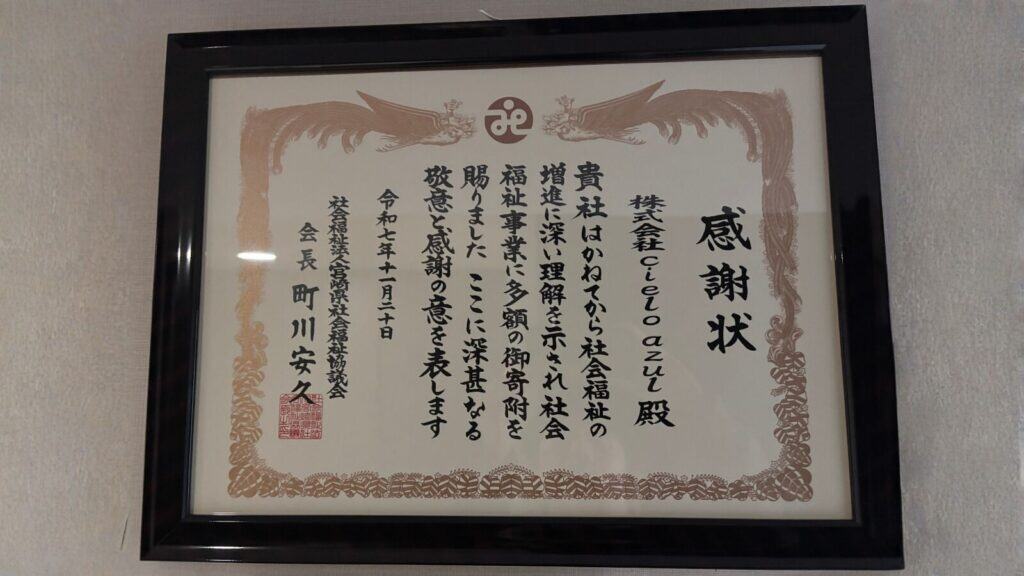 感謝状
株式会社cielo azul 殿
貴社はかねてから社会福祉の
増進に深い理解を示され社会
福祉事業に多額の御寄附を
賜りました ここに深甚なる
敬意と感謝の意を表します
令和七年十一月二十日
社会福祉法人宮崎県社会福祉協議会
会長 町川安久